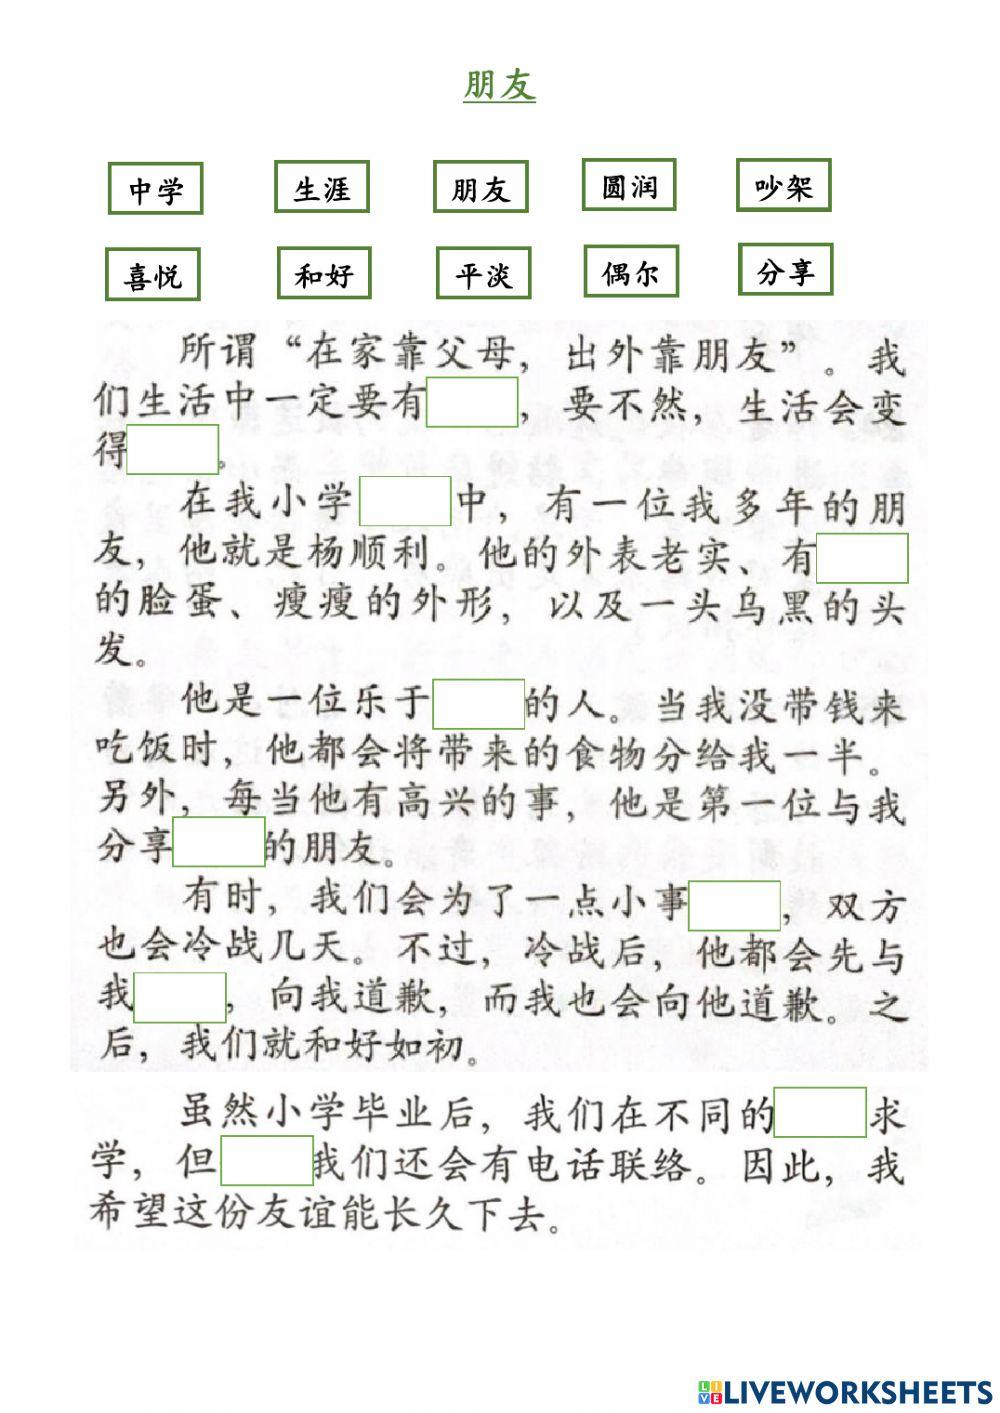 朋友
中学 生涯 朋友 圆润 吵架
喜悦 和好 平淡 偶尔 分享
所谓“在家靠父母，出外靠朋友”。我
们生活中一定要有，要不然，生活会变
得。
在我小学中，有一位我多年的朋
友，他就是杨顺利。他的外表老实、有
的脸蛋、瘦瘦的外形，以及一头乌黑的头
发。
他是一位乐于的人。当我没带钱来
吃饭时，他都会将带来的食物分给我一半。
另外，每当他有高兴的事，他是第一位与我
分享的朋友。
有时，我们会为了一点小事，双方
也会冷战几天。不过，冷战后，他都会先与
我，向我道歉，而我也会向他道歉。之
后，我们就和好如初。
虽然小学毕业后，我们在不同的求
学，但我们还会有电话联络。因此，我
希望这份友谊能长久下去。
LIVE LIVEWORKSHEETS